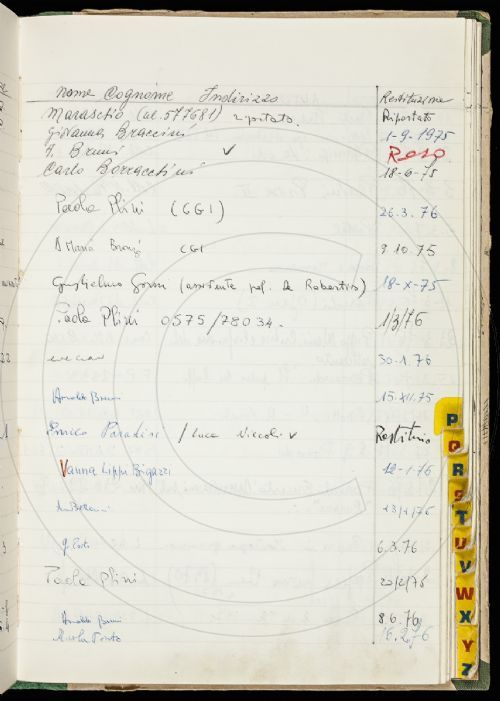 Nome Cognome Indirizzo Restituzione
Maraschio (tel. 577681) Riportato
Giovanna Braccini 1-9-1975
A. Bruni ✓ Reso
Carlo 18-6-75
Paola Plini (CGI) 26.3.76
D'Maria CGI 9.10.75
Guglielmo Gorni (assistente prof. De Robertis) 18-X-75
Paola Plini 0575/78034. 1/3/76
30-1.76
Arnaldo Bruni 15.XII.75
Enrico Paradisi / Luca Niccoli ✓ Restituito
Vanna Lippi Bigazzi 12-1-76
6.3.76
Paola Plini 20/2/76
Arnaldo Bruni 8.6.76
16.2.76
P
Q
R
S
T
U
V
W
X
Y
Z